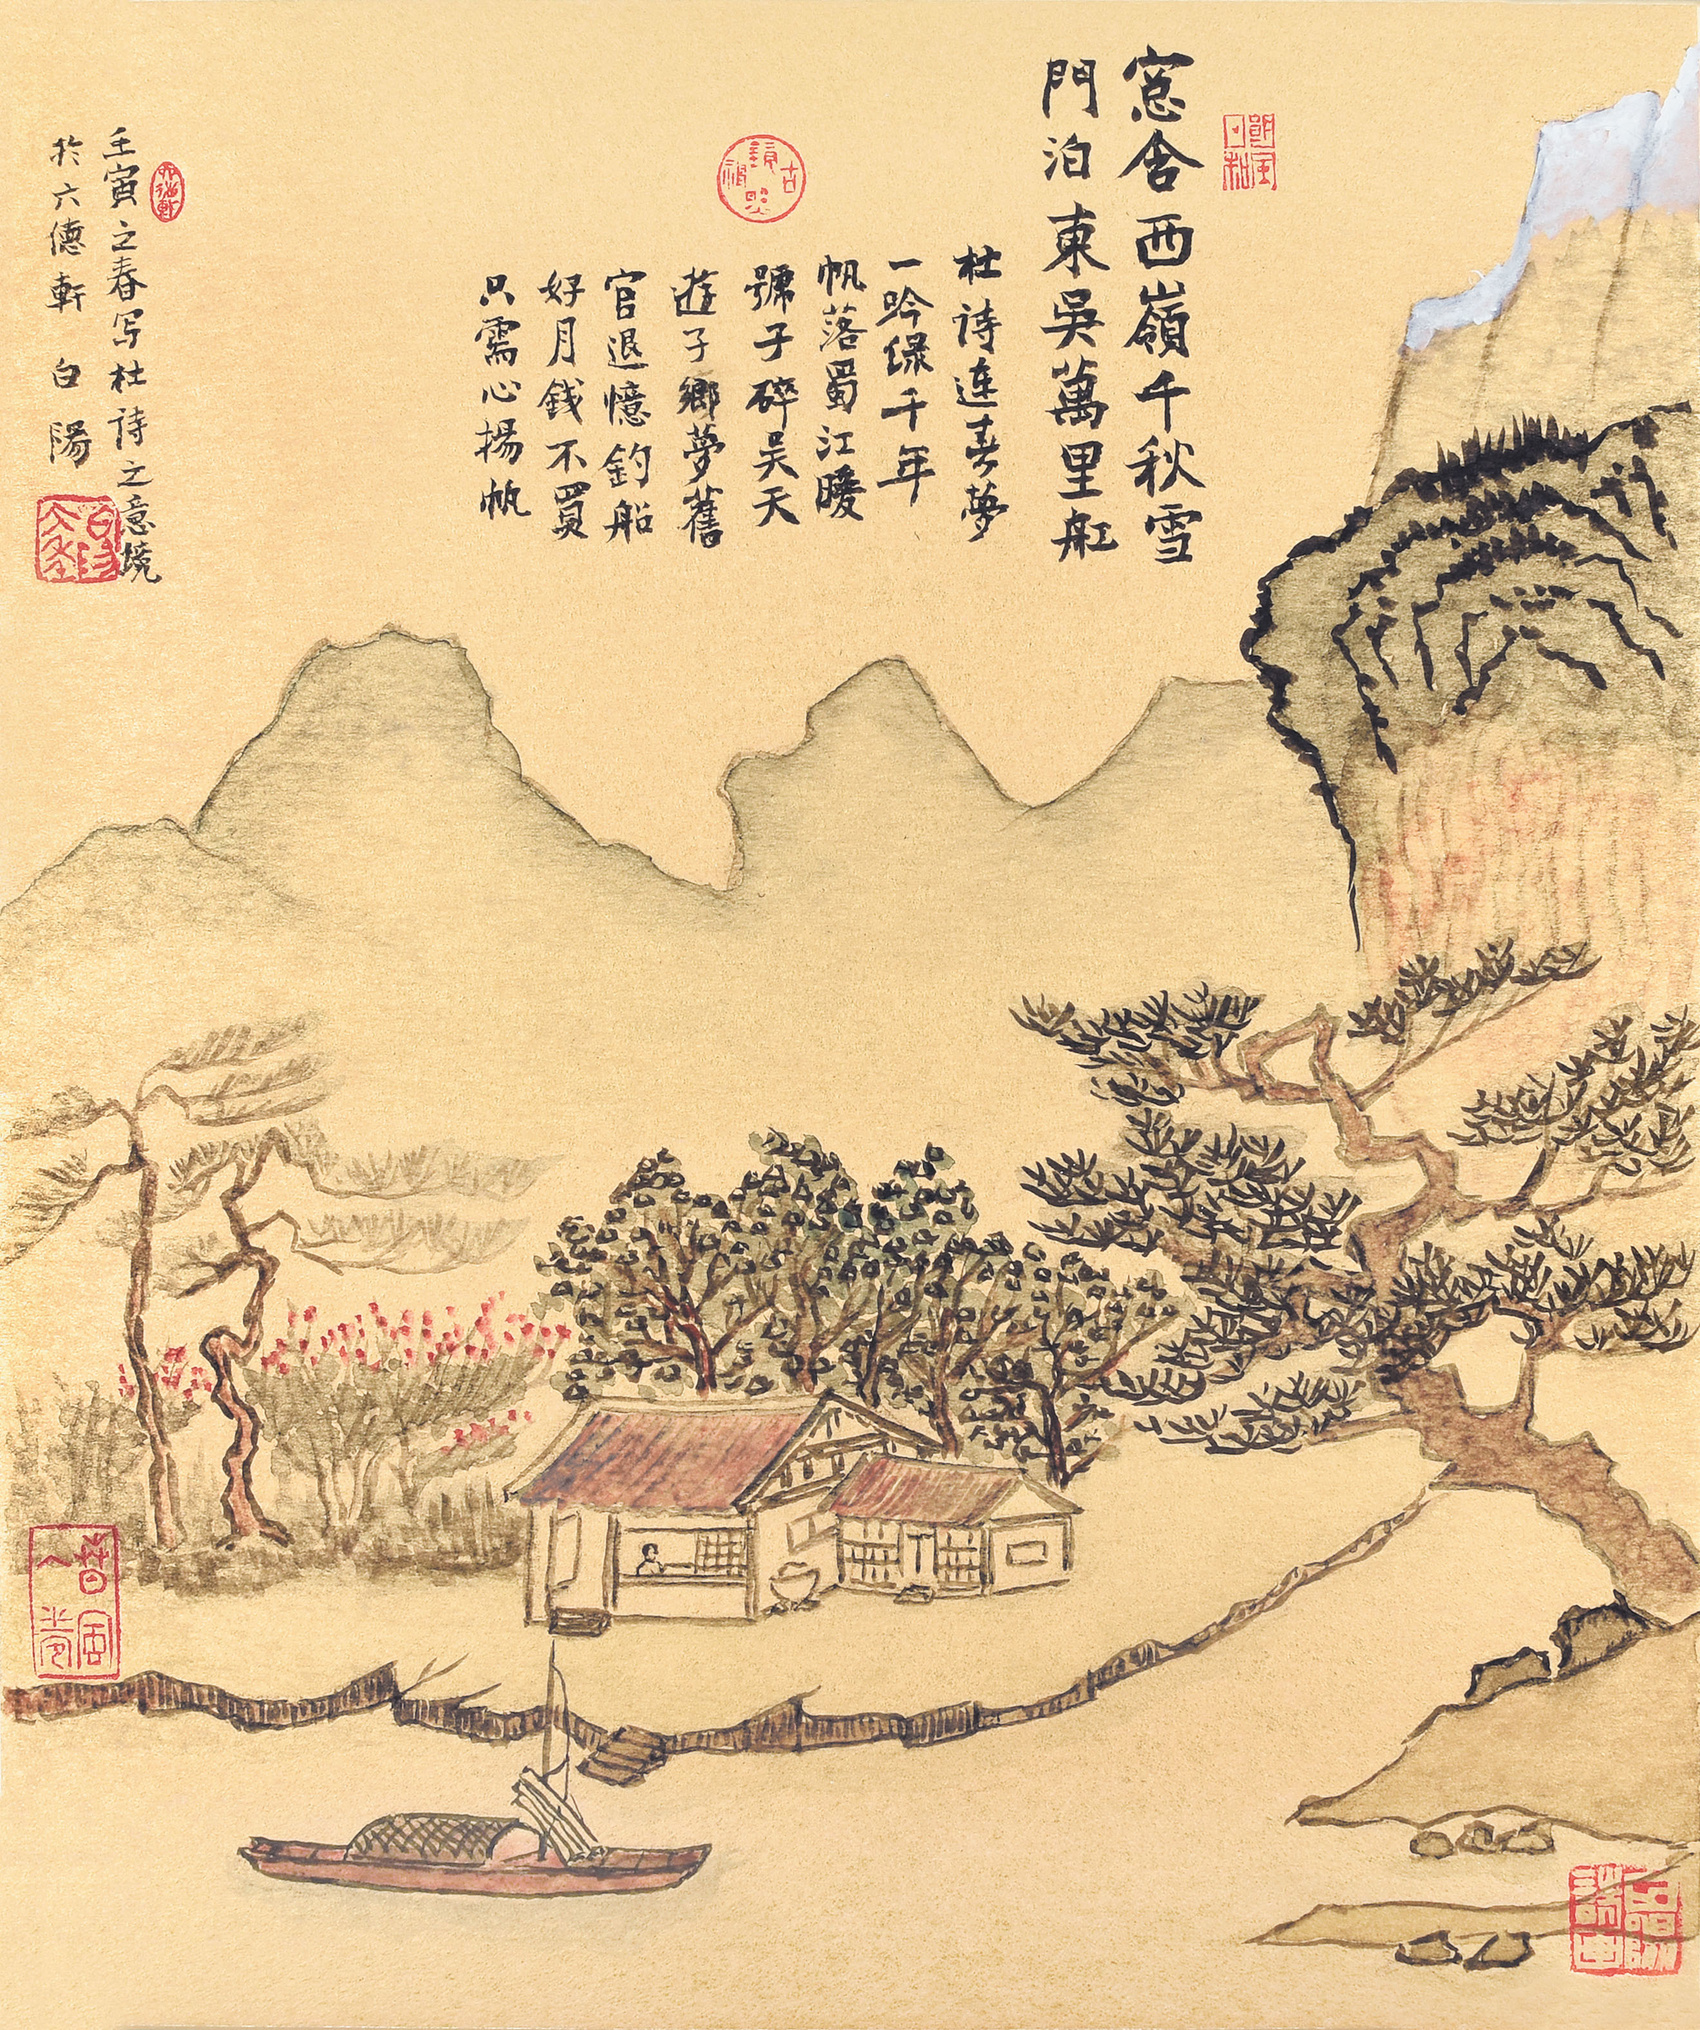 窓含西嶺千秋雪
門泊東吳萬里舡
杜诗连春夢
一吟缘千年
帆落蜀江暖
號子碎吴天
遊子鄉夢舊
官退憶釣船
好月錢不買
只需心揚帆
壬寅之春写杜诗之意境
於六德軒 白陽